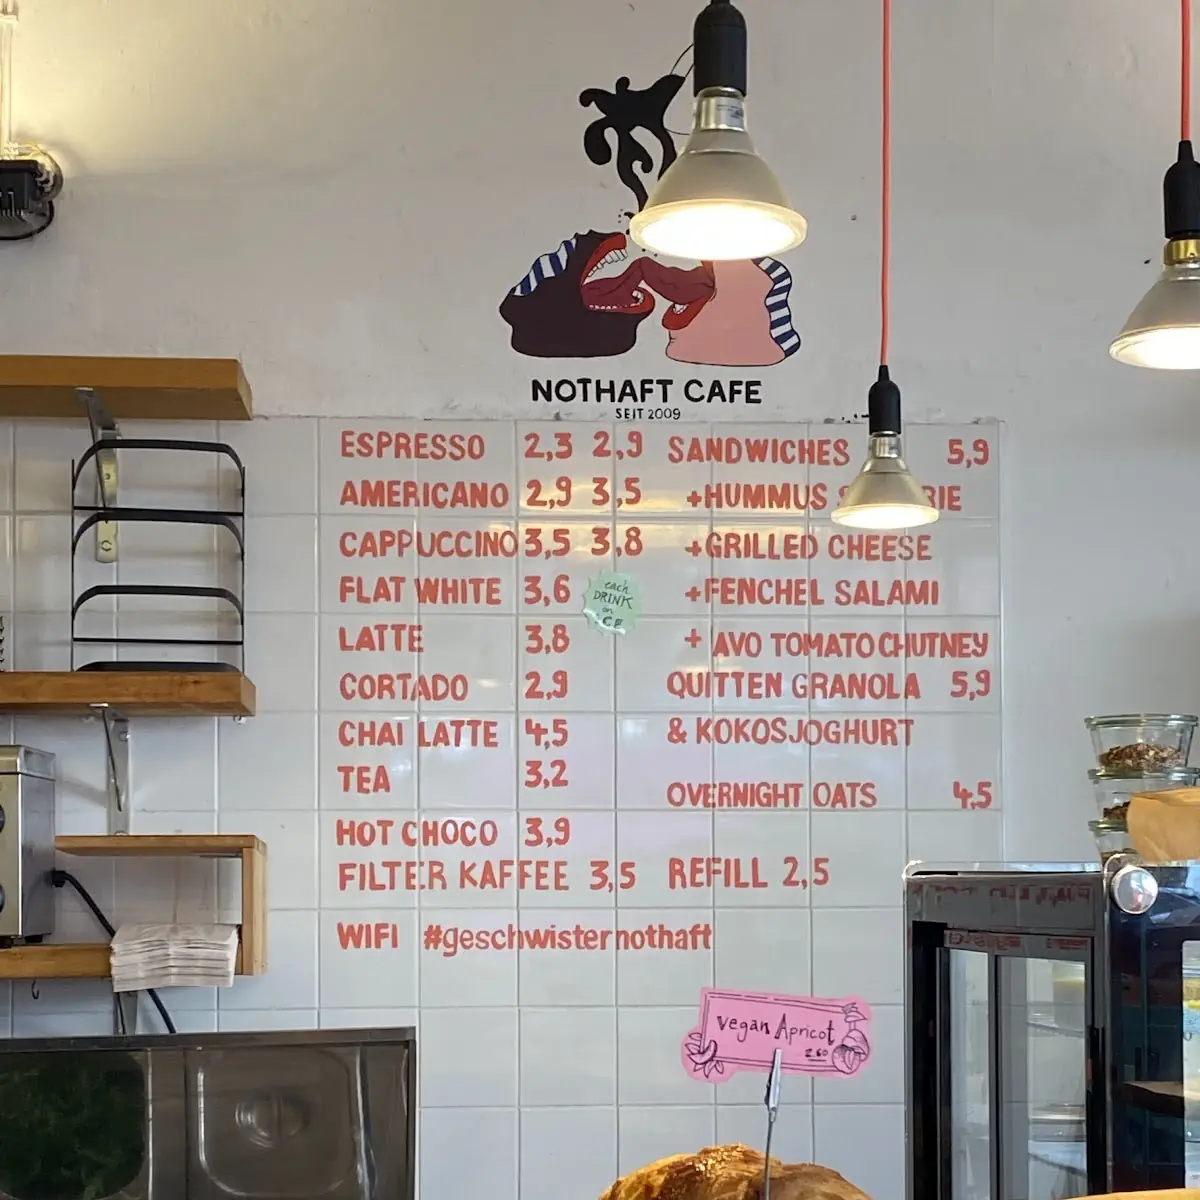 NOTHAFT CAFE
SEIT 2009
ESPRESSO 2,3 2,9
AMERICANO 2,9 3,5
CAPPUCCINO 3,5 3,8
FLAT WHITE 3,6
LATTE 3,8
CORTADO 2,9
CHAI LATTE 4,5
TEA 3,2
HOT CHOCO 3,9
FILTER KAFFEE 3,5 REFILL 2,5
WIFI #geschwisternothaft
each
DRINK
on
ICE
SANDWICHES 5,9
+HUMMUS
+GRILLED CHEESE
+FENCHEL SALAMI
+ AVO TOMATO CHUTNEY
QUITTEN GRANOLA 5,9
& KOKOSJOGHURT
OVERNIGHT OATS 4,5
vegan Apricot
2.60